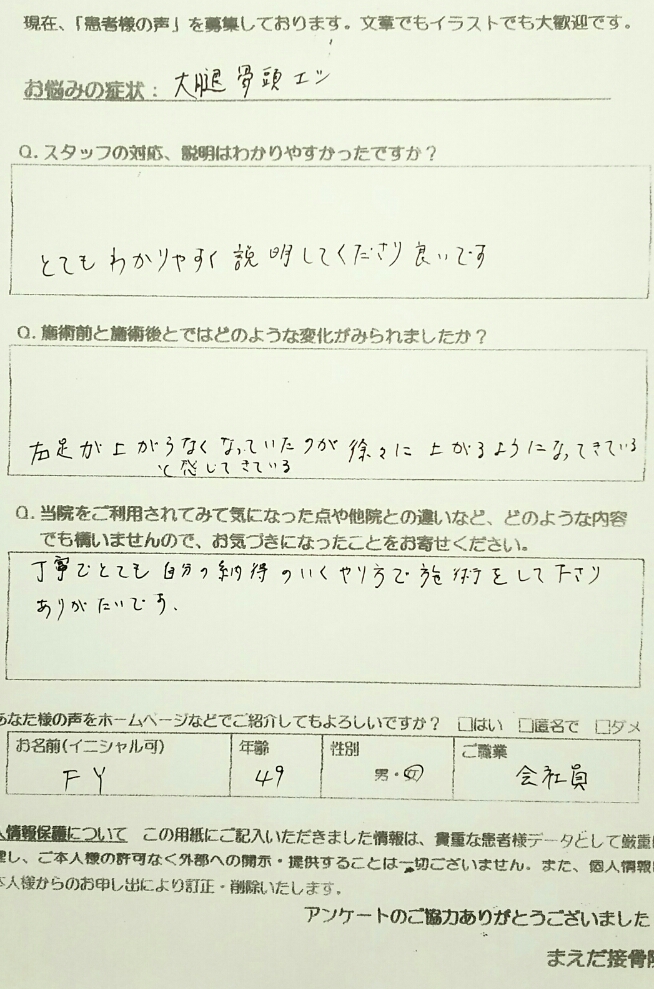 現在、「患者様の声」を募集しております。文章でもイラストでも大歓迎です。
お悩みの症状：大腿骨頭エシ
Q. スタッフの対応、説明はわかりやすかったですか？
とてもわかりやすく説明してくださり良いです
Q. 施術前と施術後とではどのような変化がみられましたか？
右足が上がらなくなっていたのが徐々に上がるようになってきている
と感じてきている
Q. 当院をご利用されてみて気になった点や他院との違いなど、どのような内容
でも構いませんので、お気づきになったことをお寄せください。
丁寧でとても自分の納得のいくやり方で施術をして下さり
ありがたいです.
あなた様の声をホームページなどでご紹介してもよろしいですか？ □はい □匿名で □ダメ
お名前(イニシャル可) 年齢 性別 ご職業
FY 49 男・女 会社員
人情報保護について この用紙にご記入いただきました情報は、貴重な患者様データとして厳重に
理し、ご本人様の許可なく外部への開示・提供することは一切ございません。また、個人情報は
本人様からのお申し出により訂正・削除いたします。
アンケートのご協力ありがとうございました
まえだ接骨院